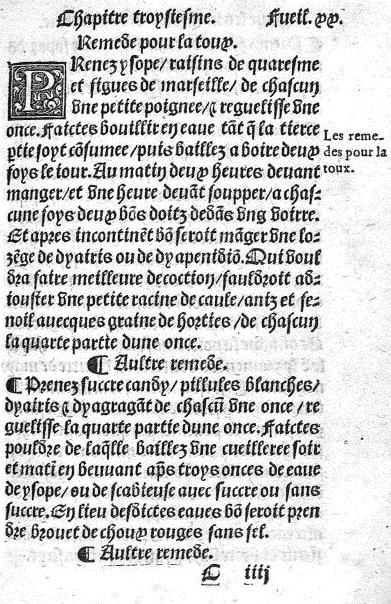 Chapitre troysiesme. Fueil. xx.
Remede pour la toux.
PRenez ysope/ raisins de quaresme
et figues de marseille/ de chascun
vne petite poignee/ ⁊ reguelisse vne
once. Faictes bouillir en eaue tāt q̄ la tierce
ptie soyt cōsumee/ puis baillez a boire deux
foys le iour. Au matin deux heures deuant
manger/ et vne heure deuāt soupper/ a chas-
cune foys deux bōs doitz dedās vng voirre.
Et apres incontinēt bō seroit māger vne lo-
zēge de dyairis ou de dyapenidiō. Qui voul
dra faire meilleure decoction/ fauldroit ad-
iouster vne petite racine de caule/ aniz et fe-
noil auecques graine de horties/ de chascun
la quarte partie dune once.
¶ Aultre remede.
¶ Prenez succre candy/ pillules blanches/
dyairis ⁊ dyagragāt de chascū vne once/ re
guelisse la quarte partie dune once. Faictes
pouldre de laq̄lle baillez vne cueilleree soir
et matī en beuuant ap̄s troys onces de eaue
de ysope/ ou de scabieuse auec succre ou sans
succre. En lieu desdictes eaues bō seroit pren
dre brouet de choux rouges sans sel.
¶ Aultre remede.
C iiij
Les reme-
des pour la
toux.